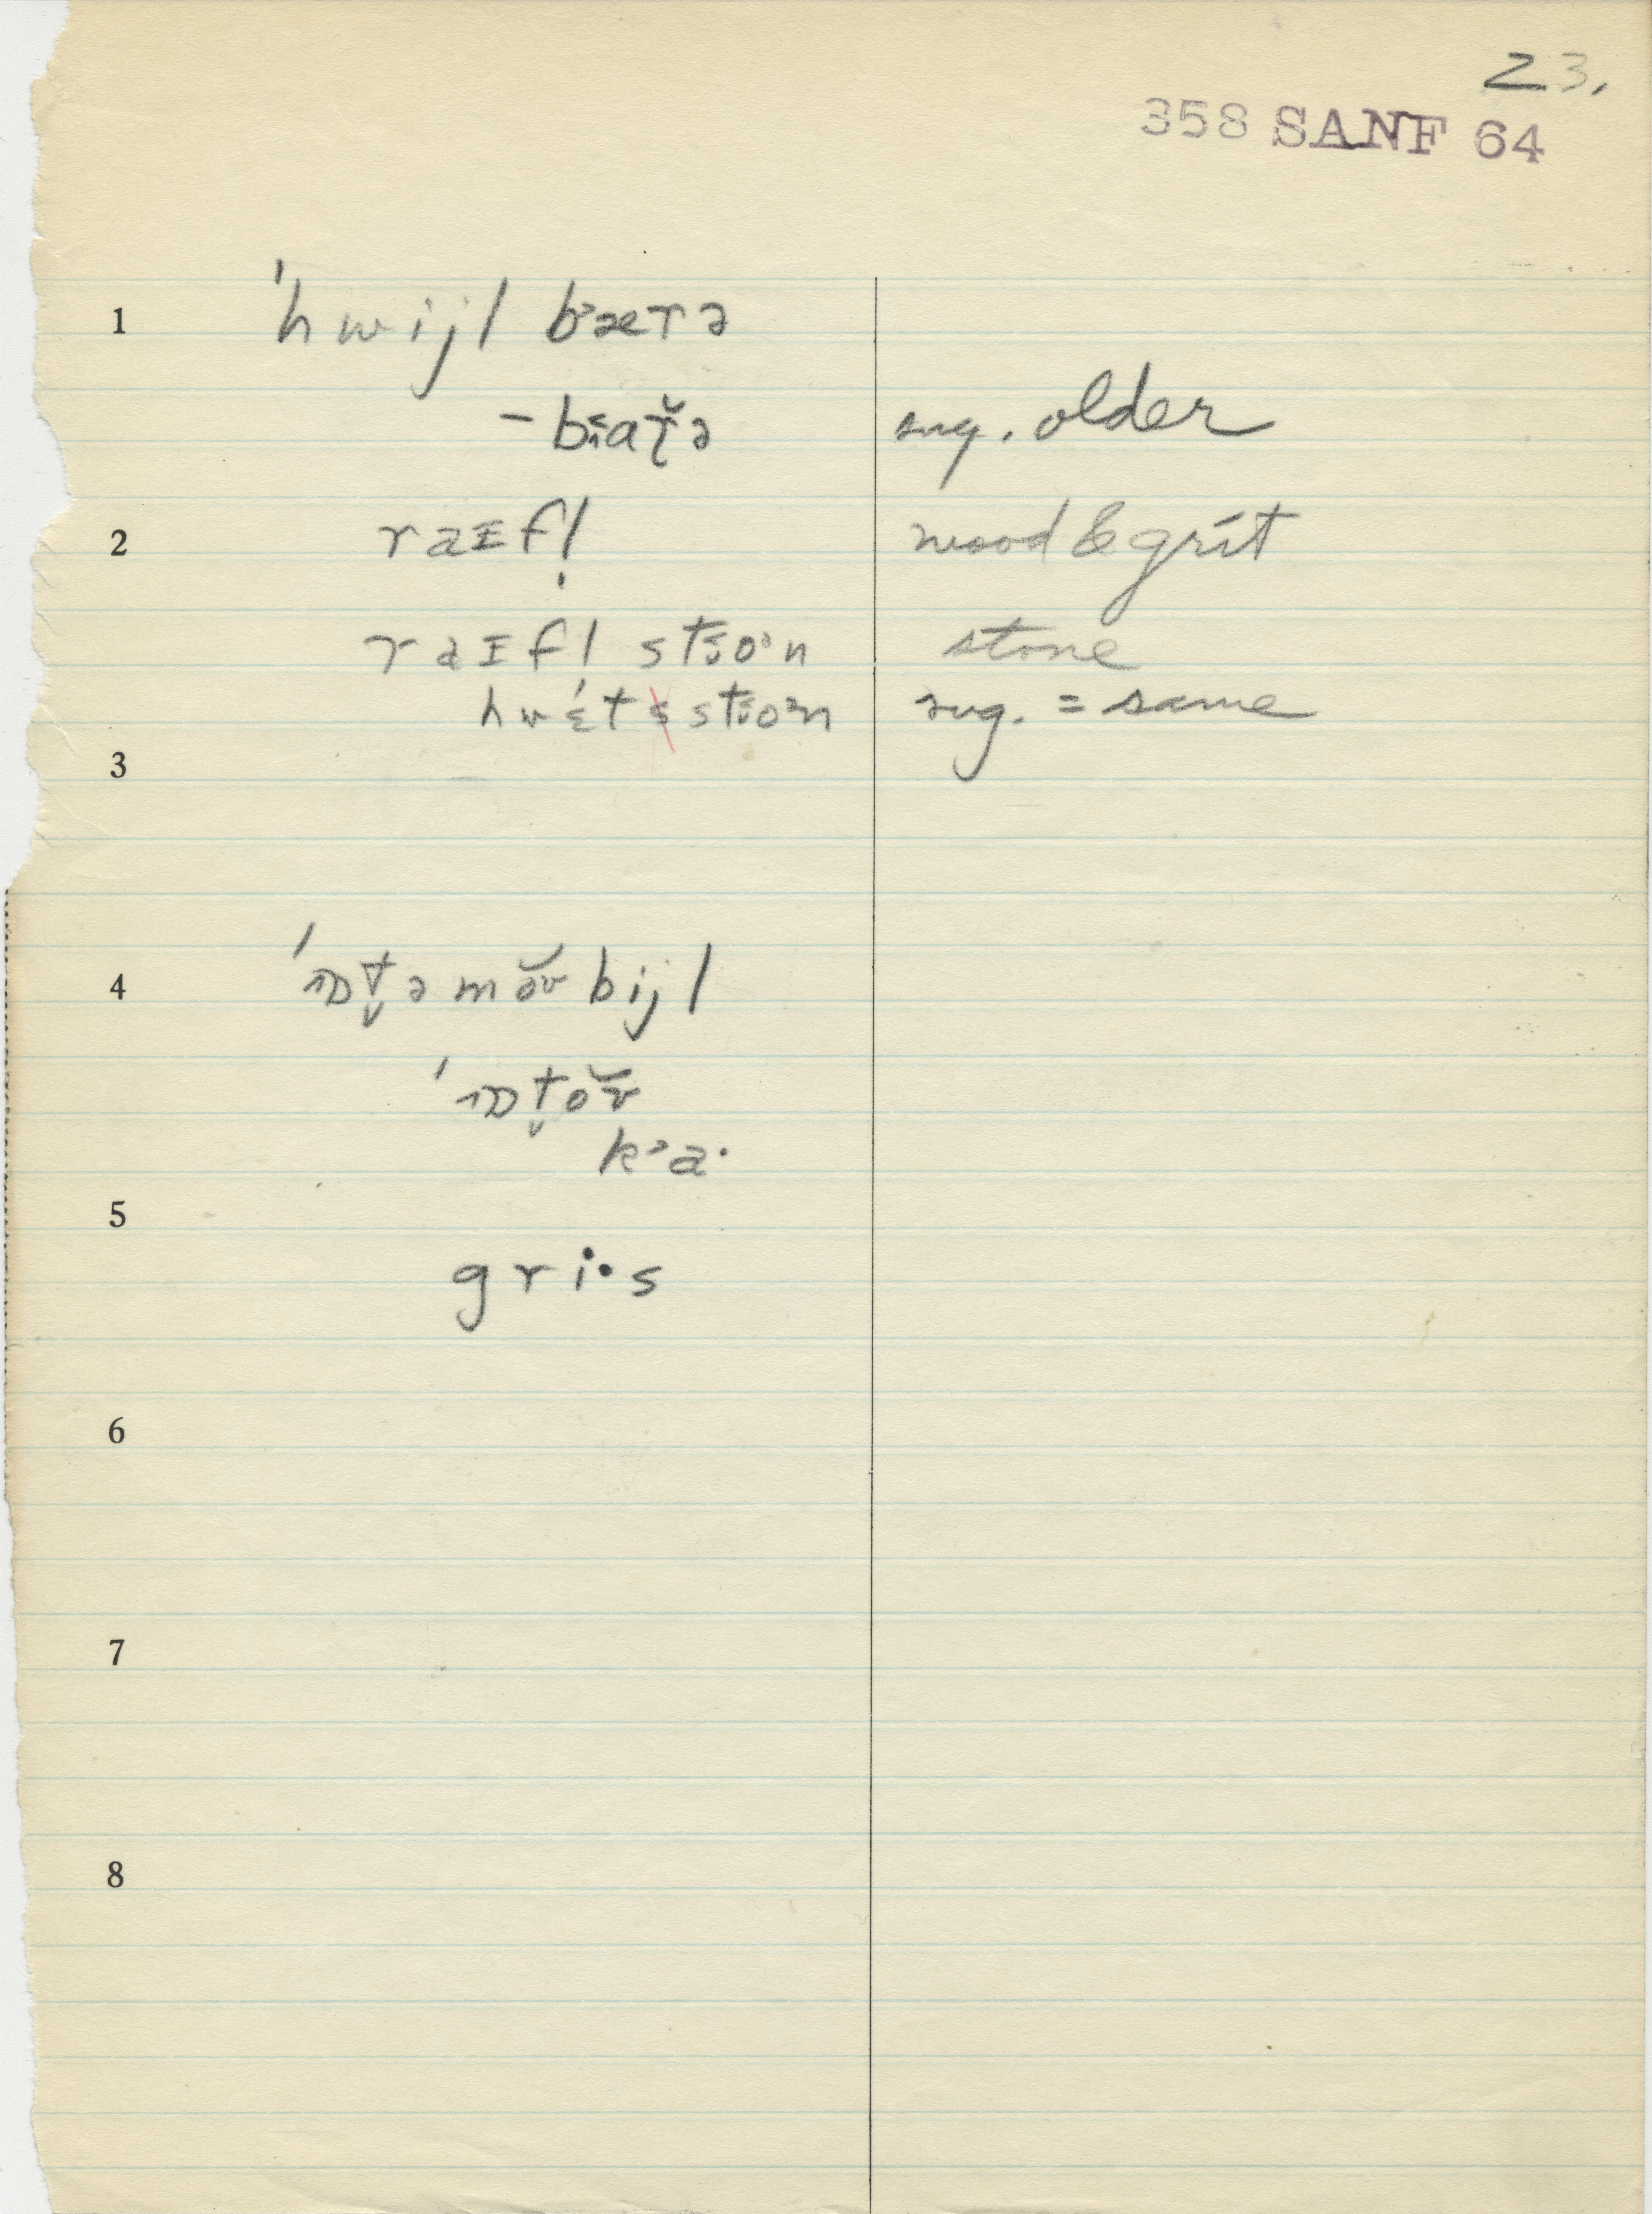 23.
358 SANF 64
1 ˈhwijl bᵊærə
-bɛaɽ̆ə sug. older
2 raɪfl̩ wood & grit
raɪfl stɵoᵊn stone
hwɛ́t stɵoᵊn sug. = same
3
4 ˈɒt̬əmə̆ʊbijl
ˈɒt̬oʊ̆
kᵊa·
5
gri·s
6
7
8